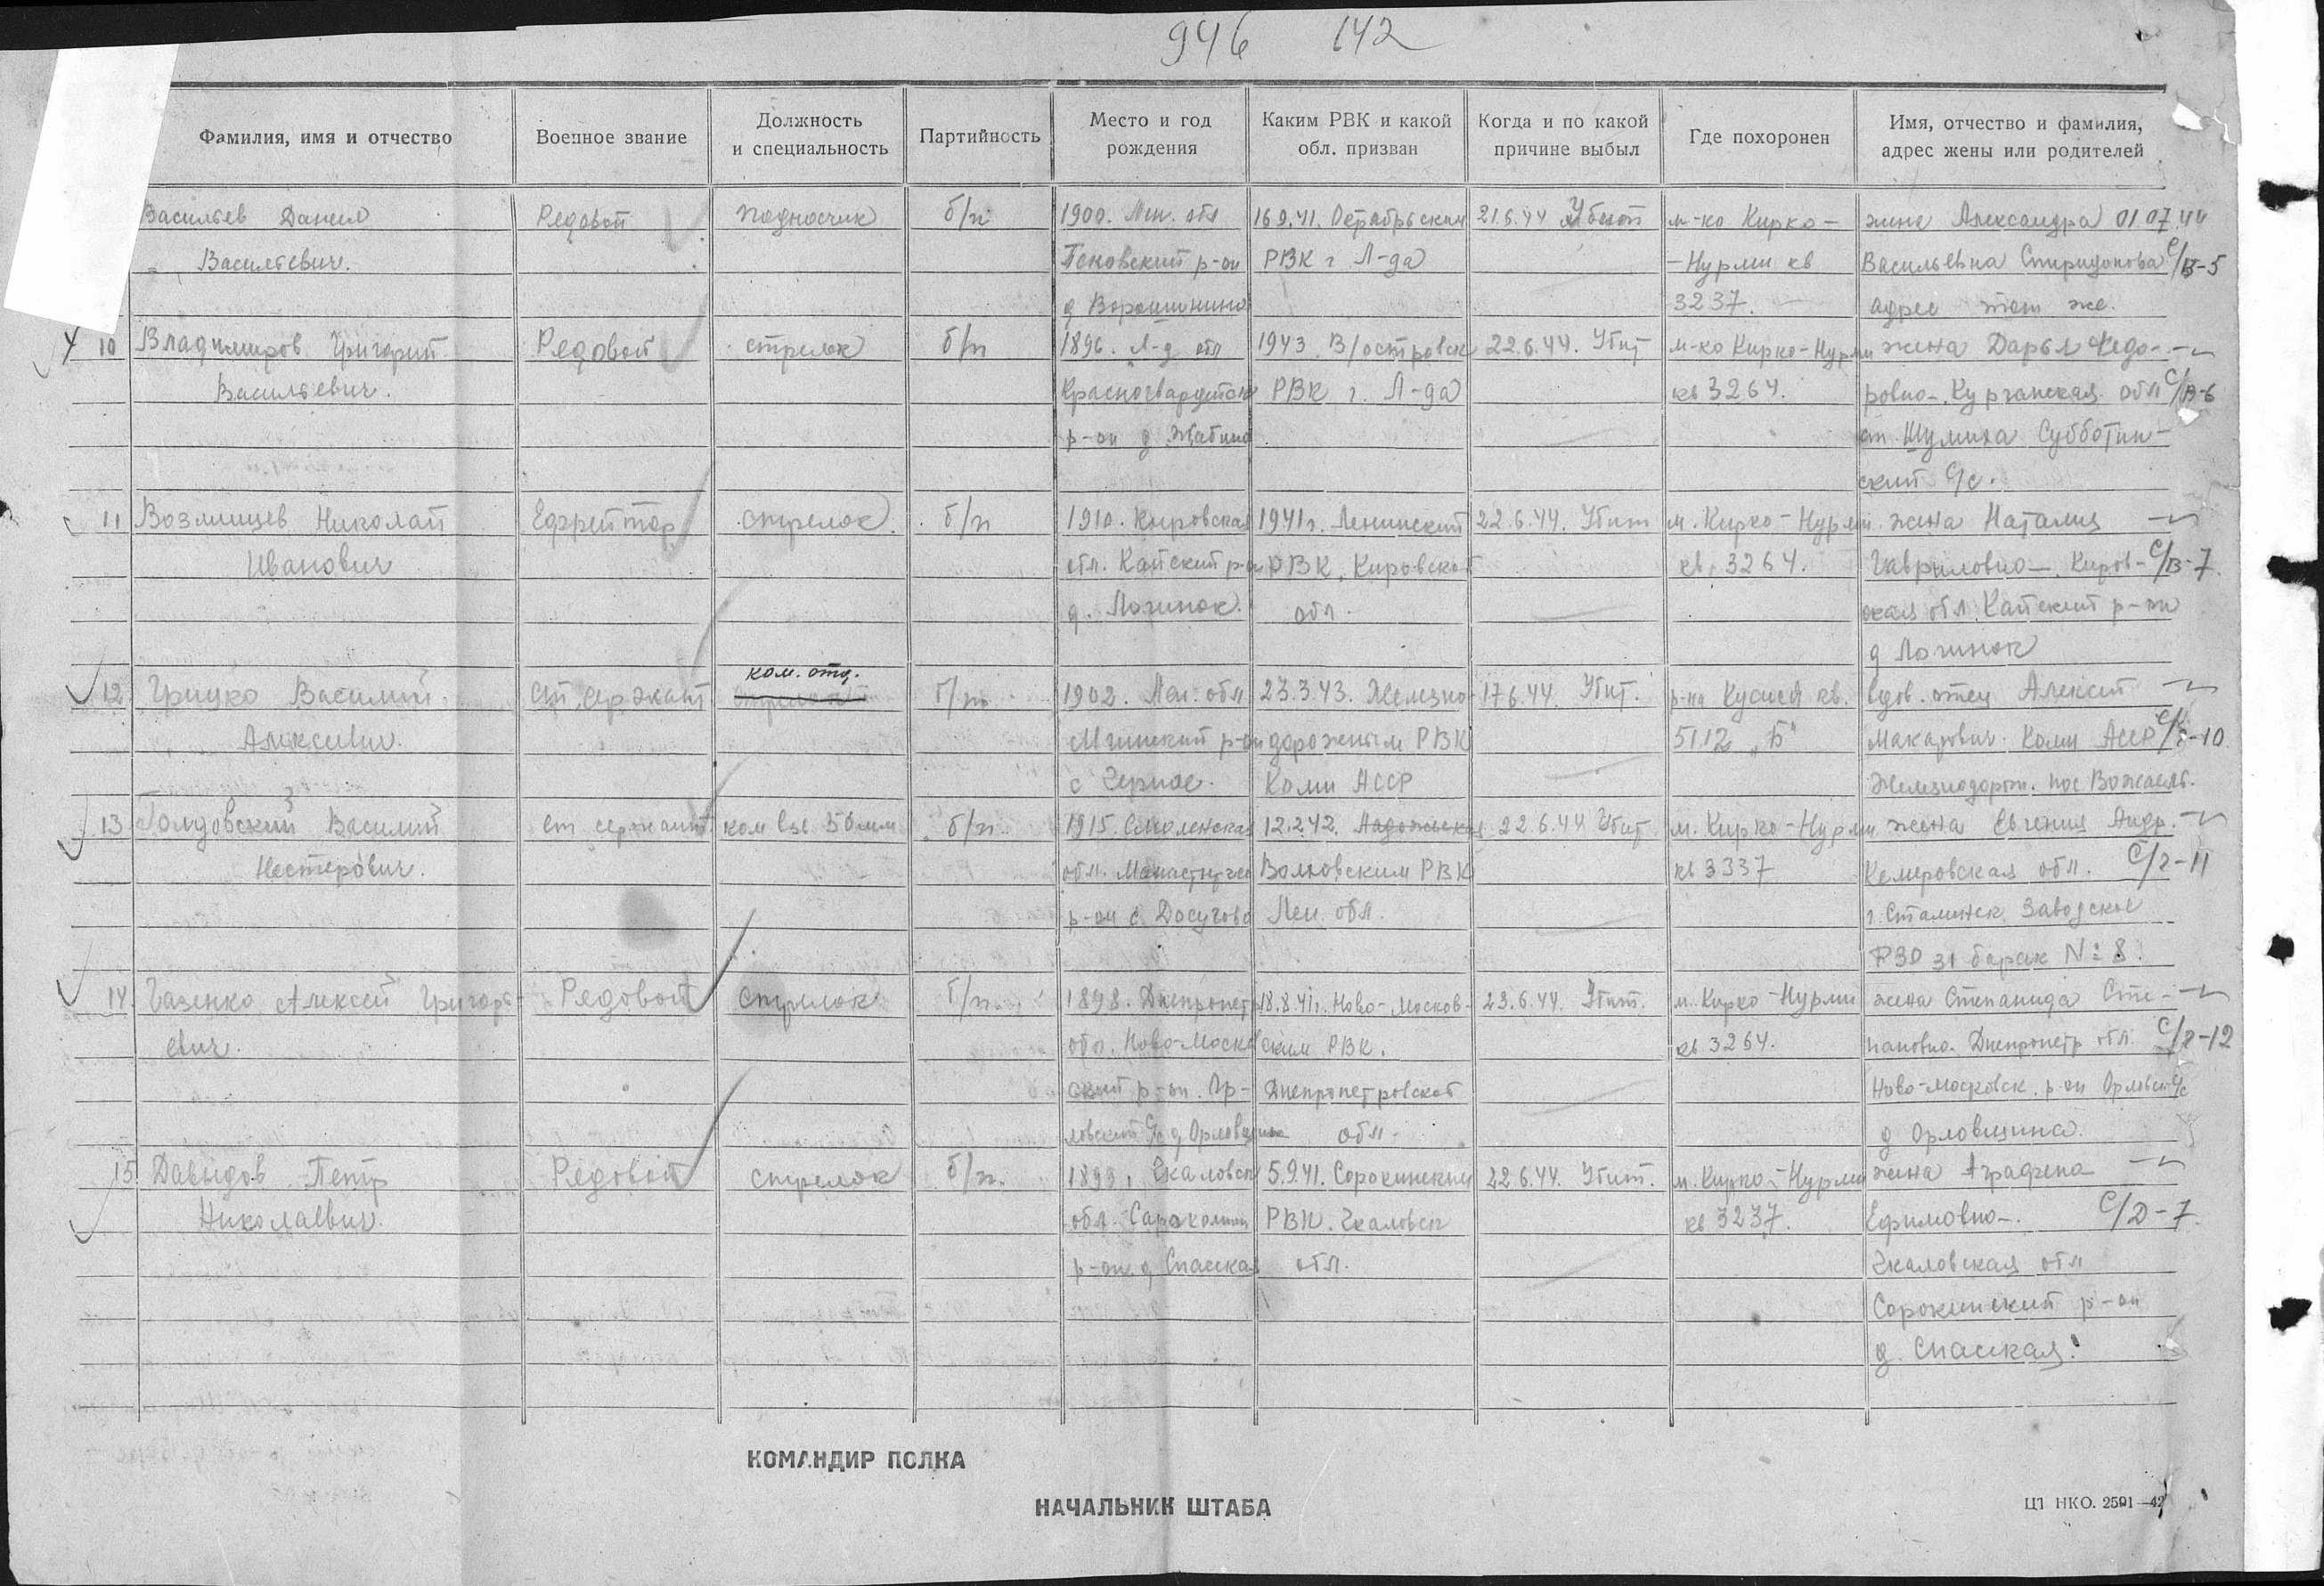 946 142
Фамилия, имя и отчество
Военное звание
Должность
и специальность
Партийность
Место и год
рождения
Каким РВК и какой
обл. призван
Когда и по какой
причине выбыл
Где похоронен
Имя, отчество и фамилия,
адрес жены или родителей
Васильев Данил
Васильевич.
Редовой
подносчик
б/п
1900. Лен. обл
р-он
д
16.9.41. Октябрьским
РВК г Л-да
21.6.44 Убит
м-ко Кирко-
-Нурми кв
3237.
жена Александра 01 07.44
Васильевна Спиридонова С/В-5
адрес тот же.
10 Владимиров Григорий
Васильевич.
Редовой
стрелок
б/п
1896. Л-д обл
Красногвардейск
р-он д Жабино
1943 В/островск
РВК г. Л-да
22.6.44. Убит
м-ко Кирко-Нурми
кв 3264.
жена Дарья Федо-
ровна-. Курганская обл С/В-6
ст. Шумиха Субботин-
ский С/с.
11 Возмищев Николай
Иванович
Ефрейтор
стрелок.
б/п
1910. Кировская
обл. Кайский р-он
д. Логинок.
1941 г. Ленинский
РВК. Кировской
обл.
22.6.44. Убит
м. Кирко-Нурми.
кв. 3264.
жена Наталия
Гавриловна-. Киров- С/В-7.
ская обл. Кайский р-он
д Логинок
12 Грицко Василий.
Алексеевич.
ст. сержант
ком. отд.
б/п.
1902. Лен. обл
Мгинский р-он
с Черное.
23.3.43. Железно-
дорожным РВК
Коми АССР
17.6.44. Убит.
р-на Кусиея кв.
5112 „Б"
вдов. отец Алексей
Макарович. Коми АССР С/г-10.
Железнодорож. пос Вожаель.
13 Голдовский Василий
З
Нестерович.
ст сержант
ком взв 50 мм
б/п.
1915. Смоленская
обл.
р-он с. Досугово
12.2.42. Ладожская
Волховским РВК
Лен. обл.
22.6.44 Убит
м. Кирко-Нурми
кв 3337
жена Евгения Андр.
Кемеровская обл. С/г-11
г. Сталинск Заводское
барак № 8.
14. Газенко Алексей Григорь-
евич.
Редовой
стрелок
б/п.
1898. Днепропетр
обл. Ново-Моско
ский р-он. Ор-
ловский С/с д Орловщина
18.8.41 г. Ново-Москов-
ским РВК.
Днепропетровской
обл.
23.6.44. Убит.
м. Кирко-Нурми
кв 3264.
жена Степанида Сте-
пановна. Днепропетр обл. С/г-12
Ново-московск. р-он Орловск С/с
д Орловщина.
15. Давыдов Петр
Николаевич.
Редовой
стрелок
б/п.
Чкаловск
обл.
р-он. д Спасская
5.9.41. Сорокинским
РВК. Чкаловск
обл.
22.6.44. Убит.
м. Кирко-Нурми
кв 3237.
жена Аграфена
Ефимовна-. С/Д-7.
Чкаловская обл
Сорокинский р-он
д. Спасская.
КОМАНДИР ПОЛКА
НАЧАЛЬНИК ШТАБА
ЦТ НКО. 2591—42